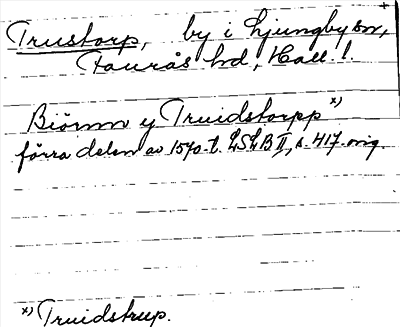 Trustorp, by i Ljungby sn,
Faurås hd, Hall. l.
Biörnn y Truidstorpp x)
förra delen av 1570-t. LSLB II, s. 417. orig.
x) Truidstrup.